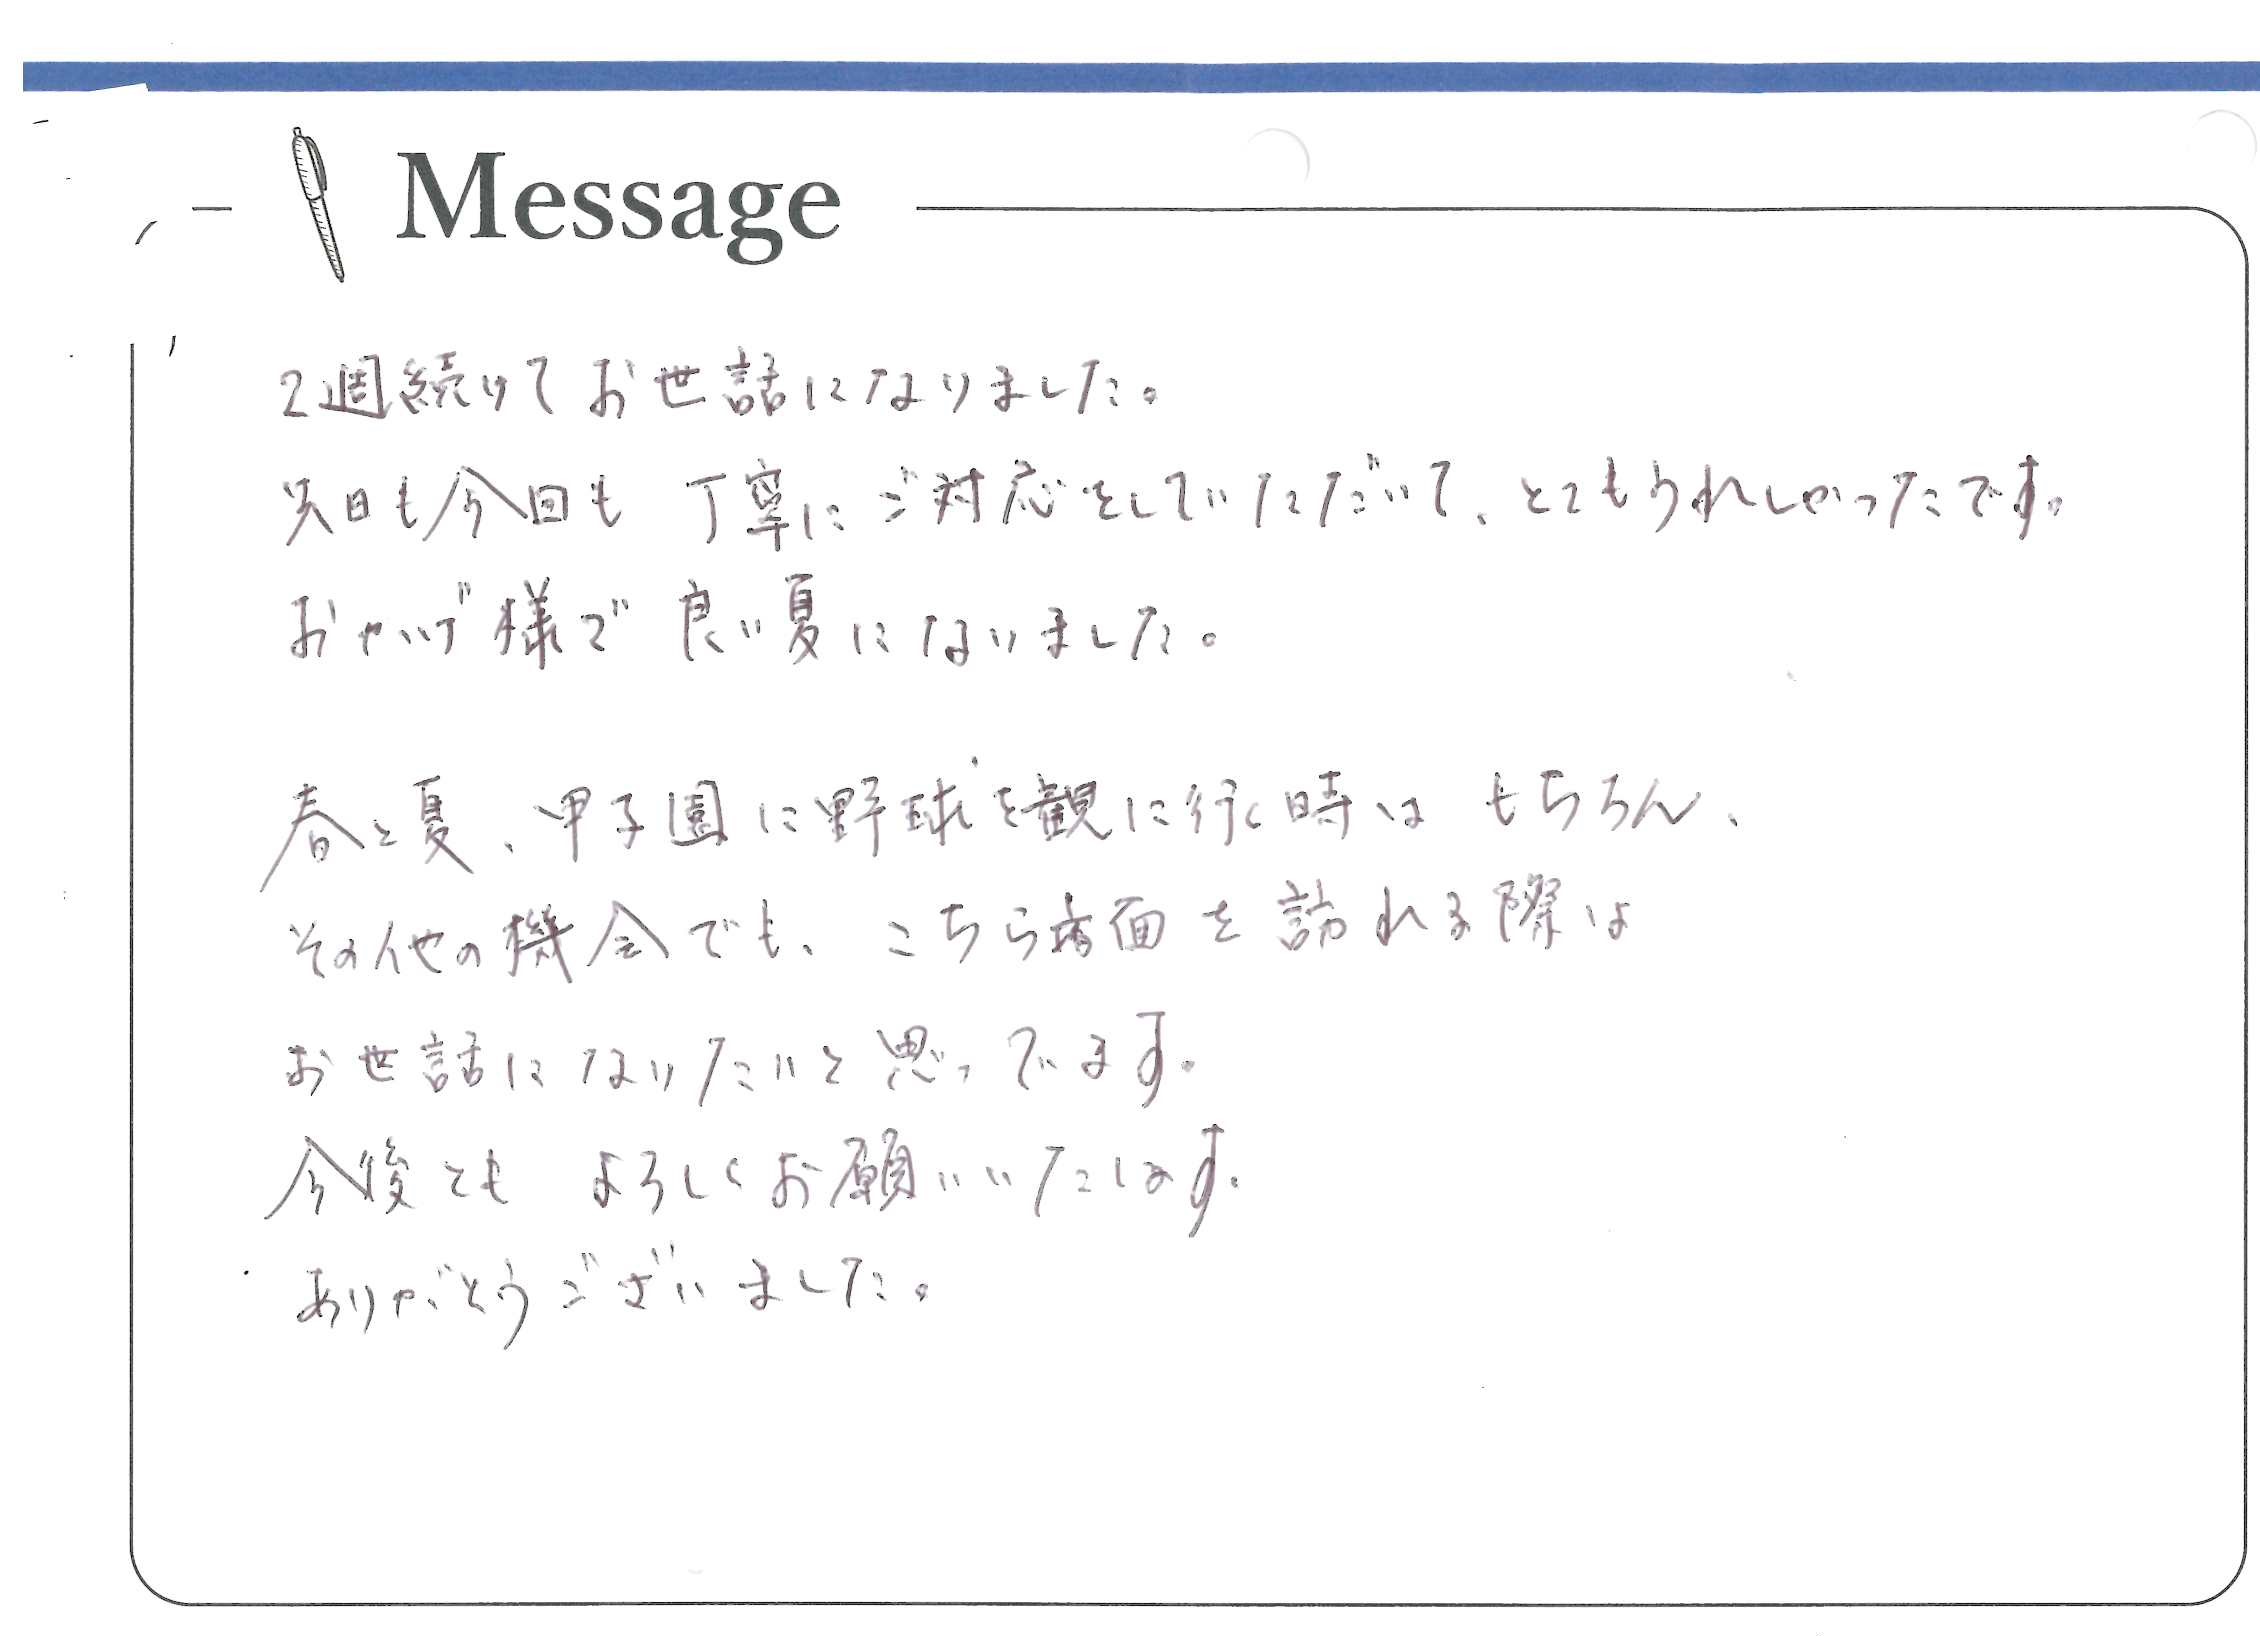 Message
2週続けてお世話になりました。
先日も今回も丁寧にご対応をしていただいて、とてもうれしかったです。
おかげ様で良い夏になりました。
春と夏、甲子園に野球を観に行く時はもちろん、
その他の機会でも、こちら方面を訪れる際は
お世話になりたいと思っています。
今後ともよろしくお願いいたします。
ありがとうございました。